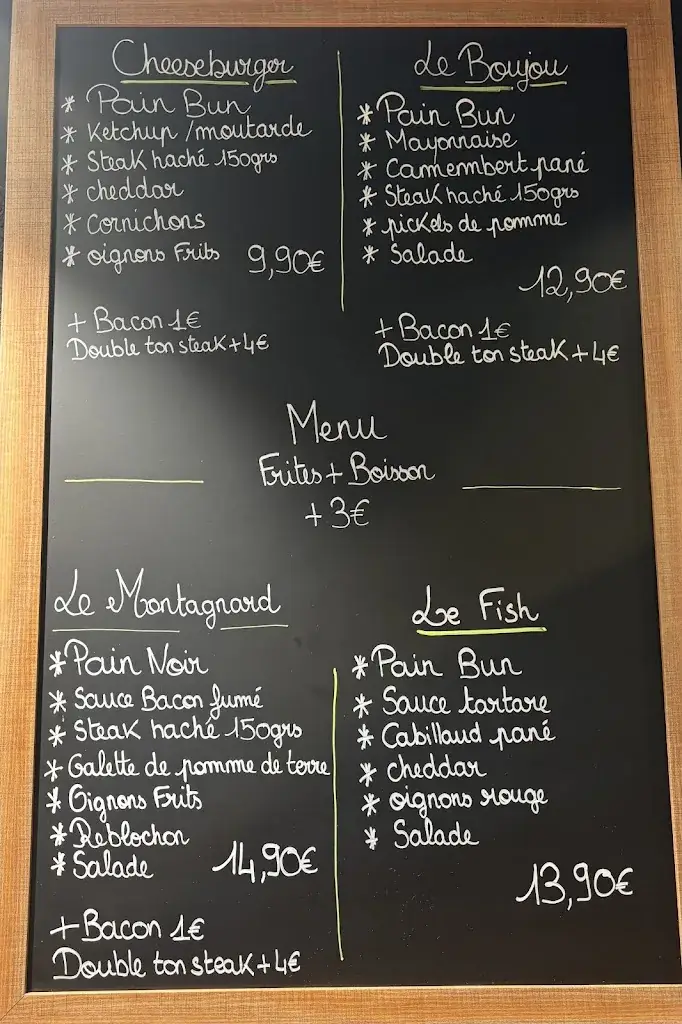 Cheeseburger
* Pain Bun
* Ketchup / moutarde
* Steak haché 150grs
* cheddar
* cornichons
* oignons Frits 9,90€
+ Bacon 1€
Double ton steak + 4€
Le Boujou
* Pain Bun
* Mayonnaise
* Camembert pané
* Steak haché 150grs
* pickels de pomme
* Salade
12,90€
+ Bacon 1€
Double ton steak + 4€
Menu
Frites + Boisson
+ 3€
Le Montagnard
* Pain Noir
* Sauce Bacon fumé
* Steak haché 150grs
* Galette de pomme de terre
* Oignons Frits
* Reblochon
* Salade 14,90€
+ Bacon 1€
Double ton steak + 4€
Le Fish
* Pain Bun
* Sauce tartare
* Cabillaud pané
* cheddar
* oignons rouge
* Salade
13,90€